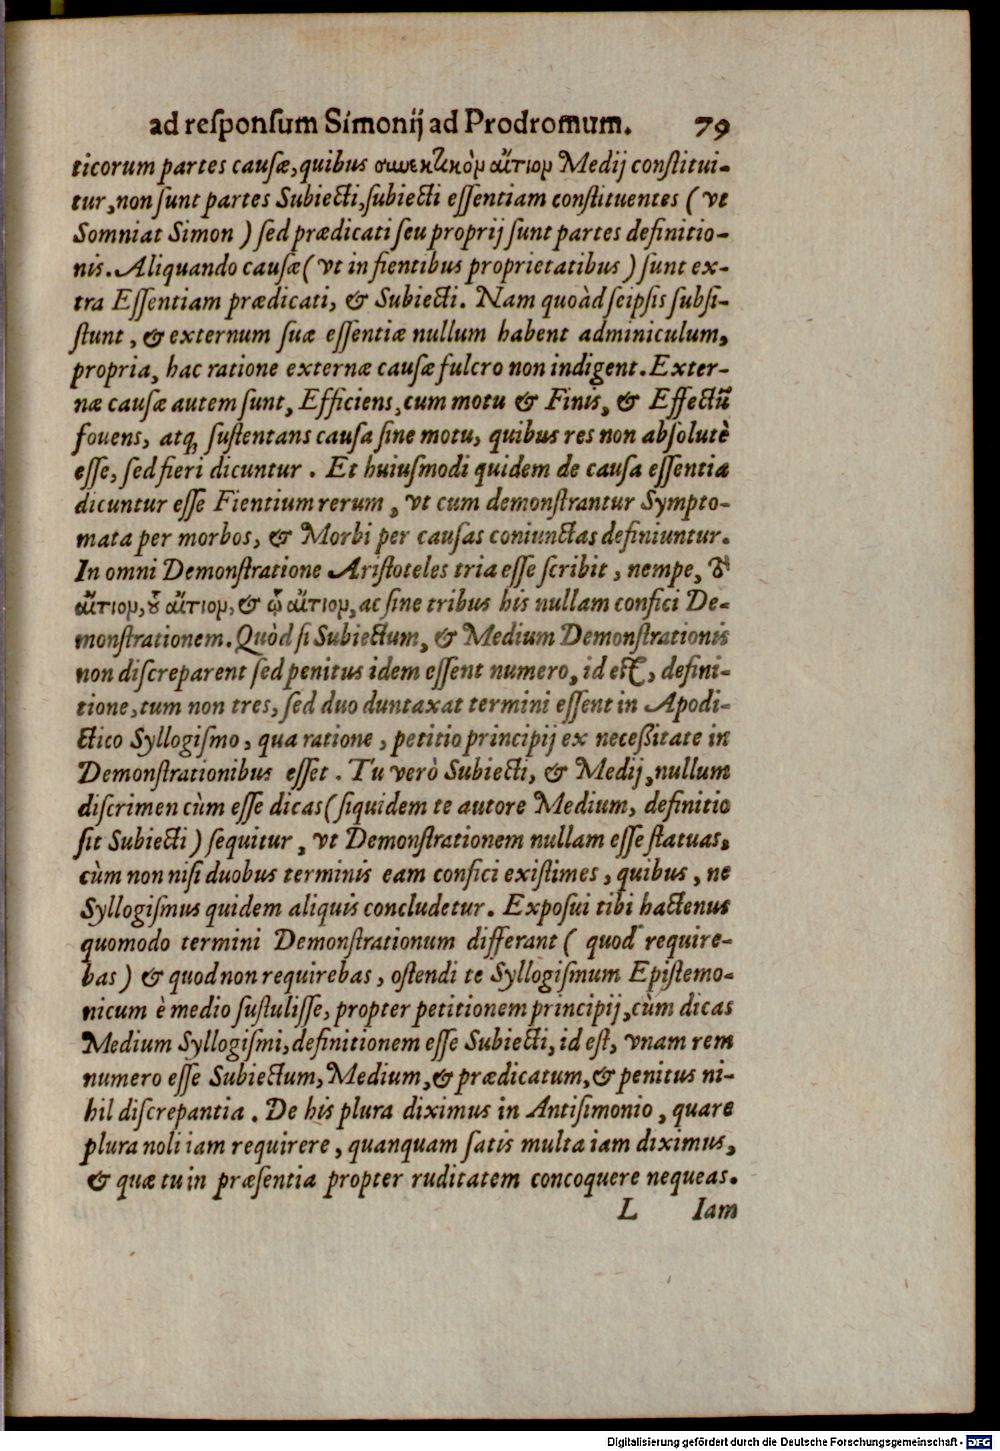 ad responsum Simonij ad Prodromum. 79
ticorum partes causæ, quibus συνεκτικὸν αἴτιον Medij constitui-
tur, non sunt partes Subiecti, subiecti essentiam constituentes ( vt
Somniat Simon ) sed prædicati seu proprij sunt partes definitio-
nis. Aliquando causæ ( vt in fientibus proprietatibus ) sunt ex-
tra Essentiam prædicati, & Subiecti. Nam quoàd seipsis subsi-
stunt, & externum suæ essentiæ nullum habent adminiculum,
propria, hac ratione externæ causæ fulcro non indigent. Exter-
næ causæ autem sunt, Efficiens, cum motu & Finis, & Effectũ
fouens, atq; sustentans causa sine motu, quibus res non absolutè
esse, sed fieri dicuntur. Et huiusmodi quidem de causa essentia
dicuntur esse Fientium rerum, vt cum demonstrantur Sympto-
mata per morbos, & Morbi per causas coniunctas definiuntur.
In omni Demonstratione Aristoteles tria esse scribit, nempe,
αἴτιον, αἴτιον, & ᾧ αἴτιον, ac sine tribus his nullam confici De-
monstrationem. Quòd si Subiectum, & Medium Demonstrationis
non discreparent sed penitus idem essent numero, id est, defini-
tione, tum non tres, sed duo duntaxat termini essent in Apodi-
ctico Syllogismo, qua ratione, petitio principij ex necessitate in
Demonstrationibus esset. Tu verò Subiecti, & Medij, nullum
discrimen cùm esse dicas ( siquidem te autore Medium, definitio
sit Subiecti ) sequitur, vt Demonstrationem nullam esse statuas,
cùm non nisi duobus terminis eam confici existimes, quibus, ne
Syllogismus quidem aliquis concludetur. Exposui tibi hactenus
quomodo termini Demonstrationum differant ( quod require-
bas ) & quod non requirebas, ostendi te Syllogismum Epistemo-
nicum è medio sustulisse, propter petitionem principij, cùm dicas
Medium Syllogismi, definitionem esse Subiecti, id est, vnam rem
numero esse Subiectum, Medium, & prædicatum, & penitus ni-
hil discrepantia. De his plura diximus in Antisimonio, quare
plura noli iam requirere, quanquam satis multa iam diximus,
& quæ tu in præsentia propter ruditatem concoquere nequeas.
L Iam
Digitalisierung gefördert durch die Deutsche Forschungsgemeinschaft - DFG